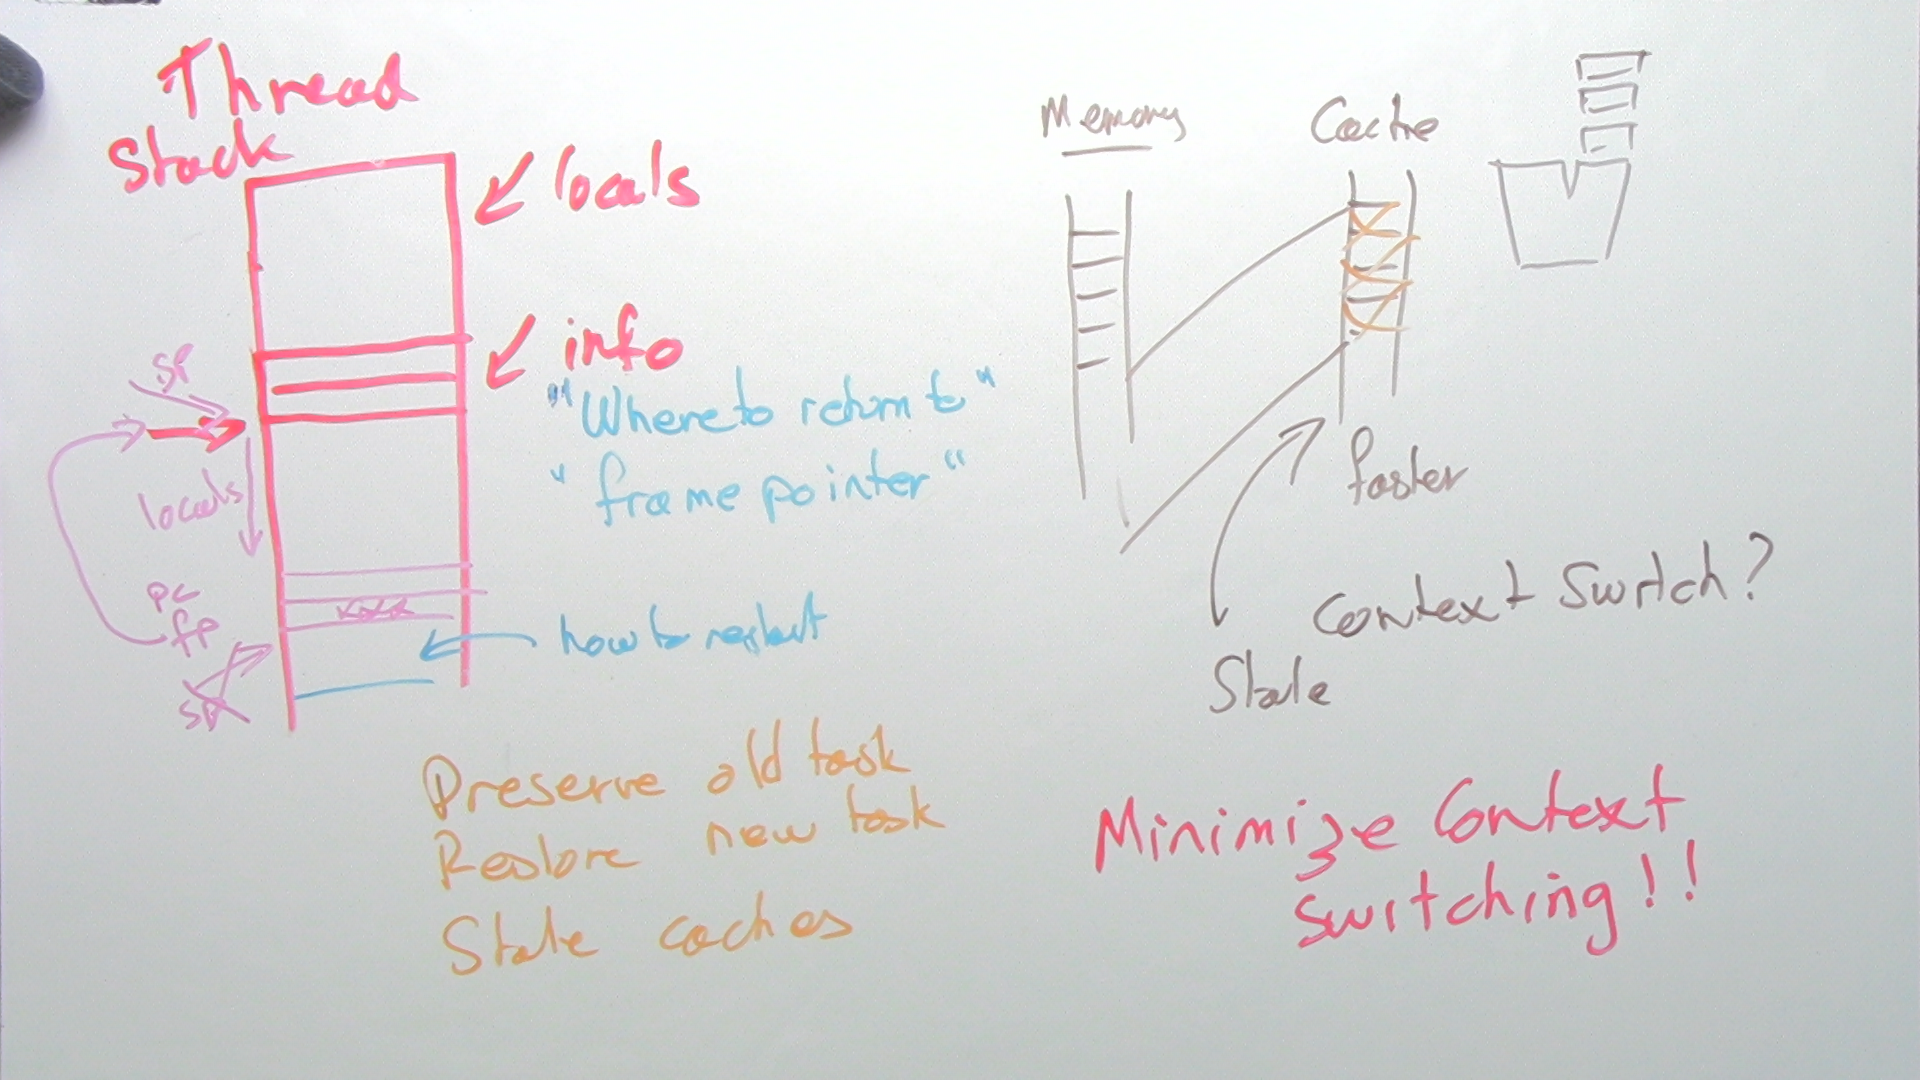 Thread
Stack
locals
info
"Where to return to"
"frame pointer"
SP
locals
PC
fp
SP
how to restart
Preserve old task
Restore new task
Stale caches
Memory
Cache
faster
Context Switch?
Stale
Minimize Context
Switching!!